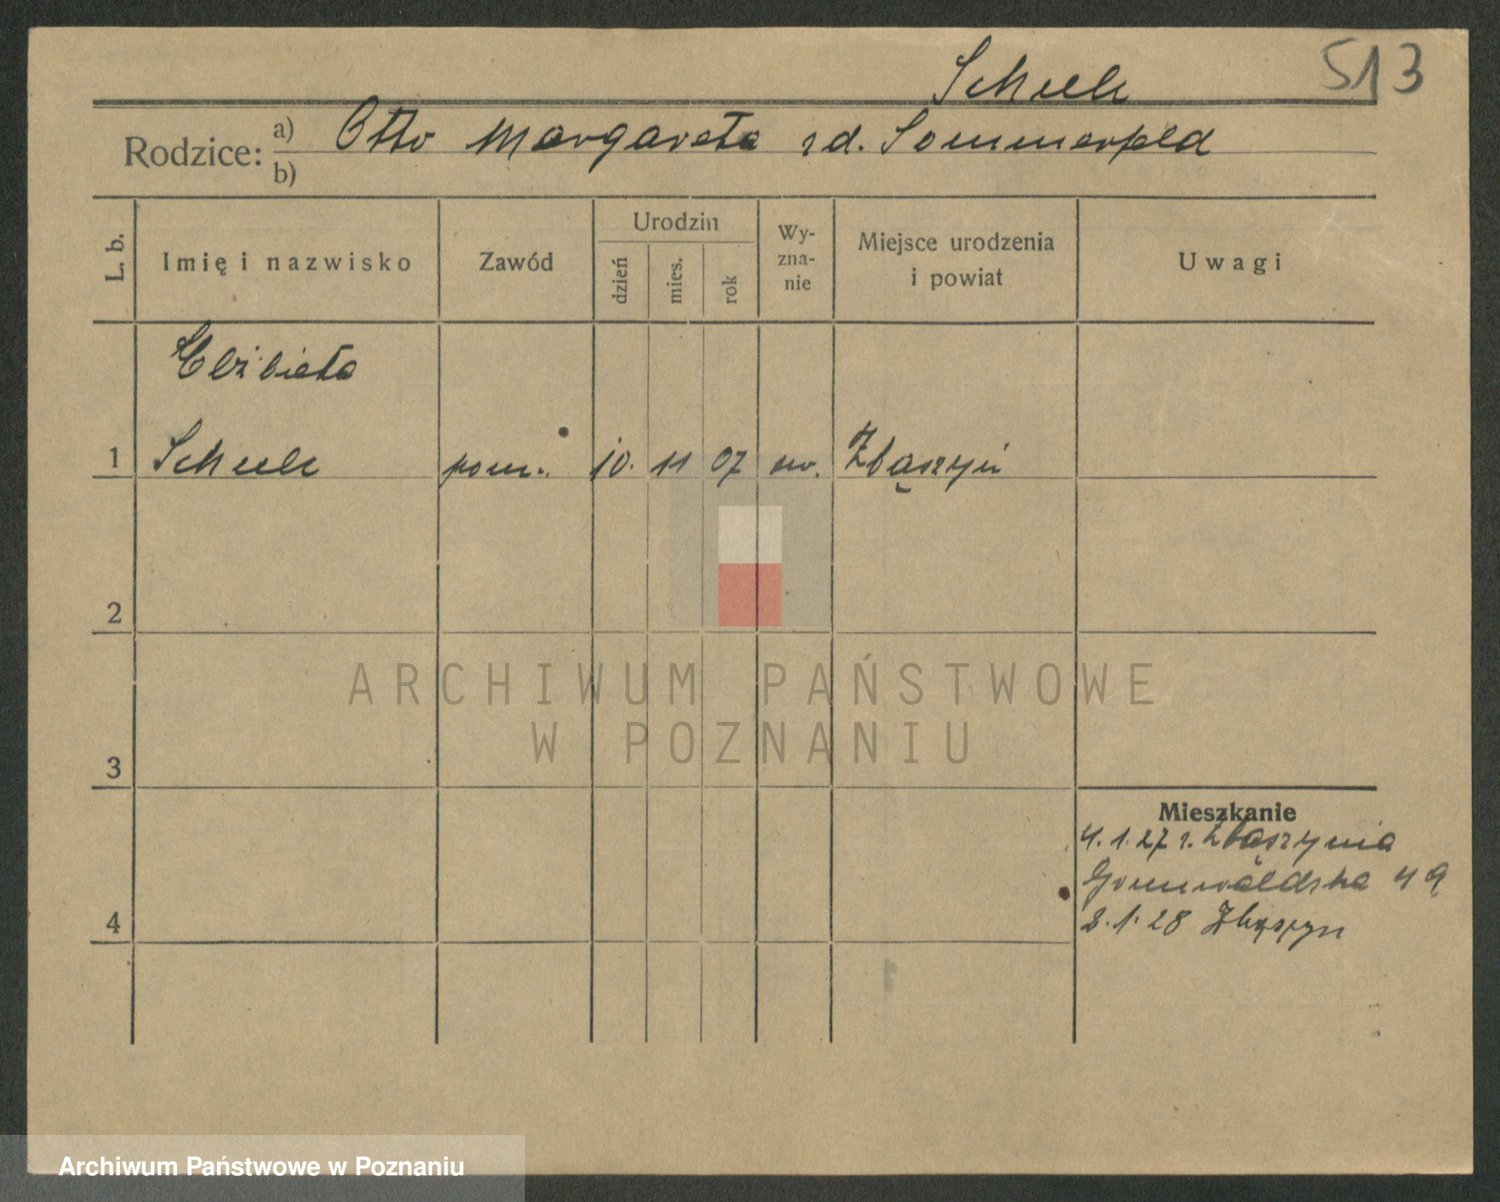 513
Schulz
Rodzice: a) Otto Margareta zd. Sommerfeld
b)
L. b.
Imię i nazwisko
Zawód
Urodzin
dzień
mies.
rok
Wy-
zna-
nie
Miejsce urodzenia
i powiat
Uwagi
Elżbieta
1 Schulz pom. 10. 11 07 ew. Zbąszyń
2
3
4
Mieszkanie
4.1.27 z Zbąszynia
2.1.28 Zbąszyn
ARCHIWUM PAŃSTWOWE
W POZNANIU
Archiwum Państwowe w Poznaniu